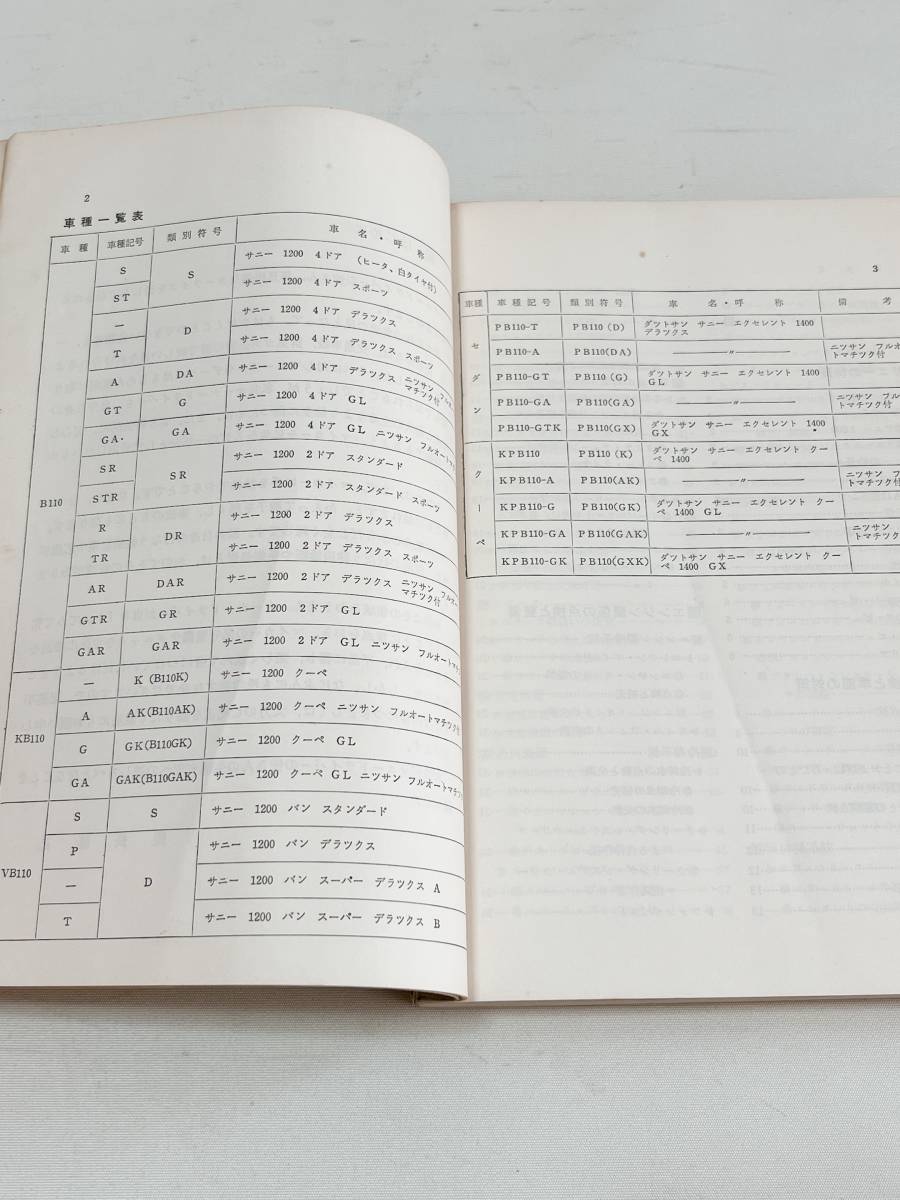 2
車種一覧表
車種 車種記号 類別符号 車名・呼称
B110
S S サニー 1200 4ドア (ヒータ、白タイヤ付)
ST サニー 1200 4ドア スポーツ
— D サニー 1200 4ドア デラックス
T サニー 1200 4ドア デラックス スポーツ
A DA サニー 1200 4ドア デラックス ニツサン フルオー
マチツク付
GT G サニー 1200 4ドア GL
GA・ GA サニー 1200 4ドア GL ニツサン フルオートマ
SR SR サニー 1200 2ドア スタンダード
STR サニー 1200 2ドア スタンダード スポーツ
R DR サニー 1200 2ドア デラツクス
TR サニー 1200 2ドア デラツクス スポーツ
AR DAR サニー 1200 2ドア デラツクス ニツサン フルオー
マチツク付
GTR GR サニー 1200 2ドア GL
GAR GAR サニー 1200 2ドア GL ニツサン フルオートマチ
KB110
— K (B110K) サニー 1200 クーペ
A AK(B110AK) サニー 1200 クーペ ニツサン フルオートマチツク付
G GK(B110GK) サニー 1200 クーペ GL
GA GAK(B110GAK) サニー 1200 クーペ GL ニツサン フルオートマチツ
VB110
S S サニー 1200 バン スタンダード
P D サニー 1200 バン デラツクス
— サニー 1200 バン スーパー デラツクス A
T サニー 1200 バン スーパー デラツクス B
3
車種 車種記号 類別符号 車名・呼称 備考
セダン
PB110-T PB110 (D) ダツトサン サニー エクセレント 1400
デラツクス
PB110-A PB110(DA) —〃— ニツサン フルオ
トマチツク付
PB110-GT PB110 (G) ダツトサン サニー エクセレント 1400
GL
PB110-GA PB110(GA) —〃— ニツサン フルオ
トマチツク付
PB110-GTK PB110(GX) ダツトサン サニー エクセレント 1400
GX
クーペ
KPB110 PB110 (K) ダツトサン サニー エクセレント クー
ペ 1400
KPB110-A PB110(AK) —〃— ニツサン フル
トマチツク付
KPB110-G PB110(GK) ダツトサン サニー エクセレント クー
ペ 1400 GL
KPB110-GA PB110(GAK) —〃— ニツサン フル
トマチツク付
KPB110-GK PB110(GXK) ダツトサン サニー エクセレント クー
ペ 1400 GX